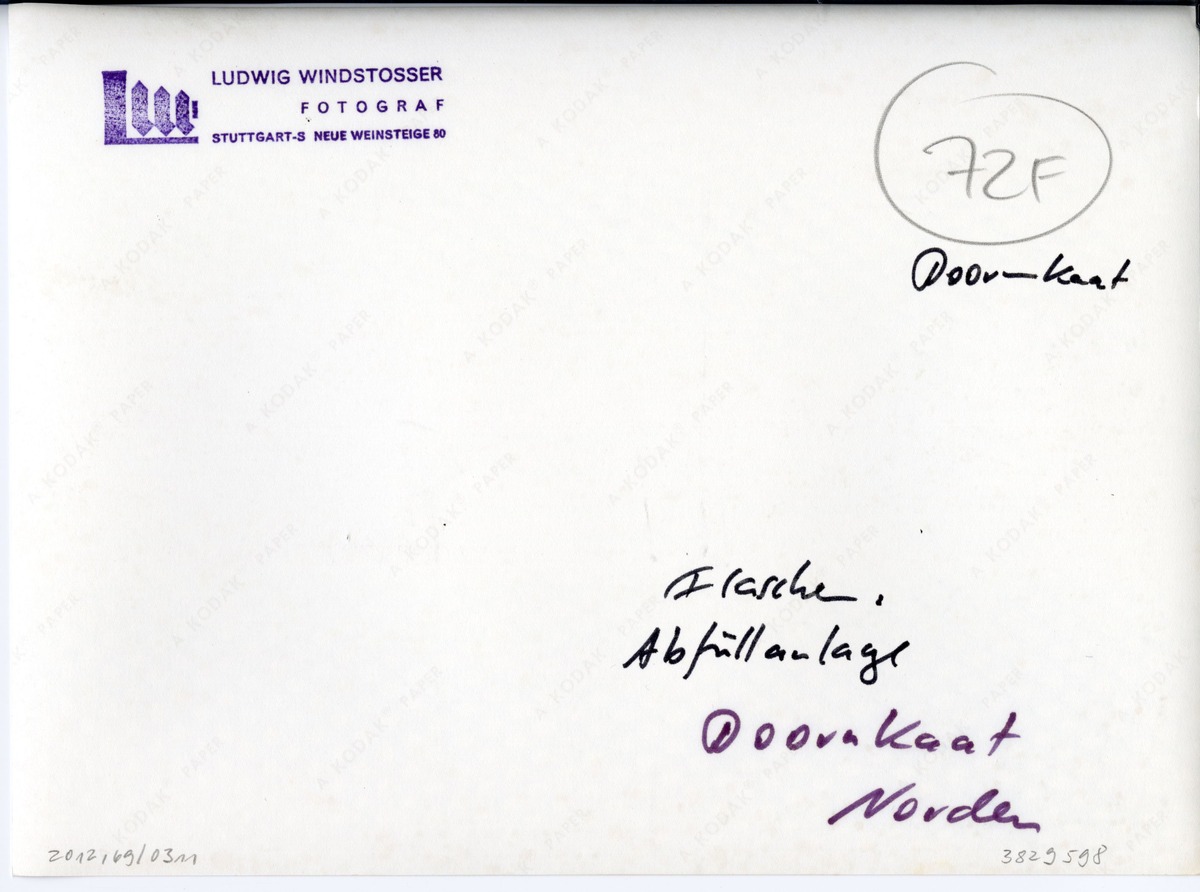 LUDWIG WINDSTOSSER
FOTOGRAF
STUTTGART-S NEUE WEINSTEIGE 80
72F
Doornkaat
Flaschen.
Abfüllanlage
Doornkaat
Norden
2012,69/0311
3829598
A KODAK PAPER